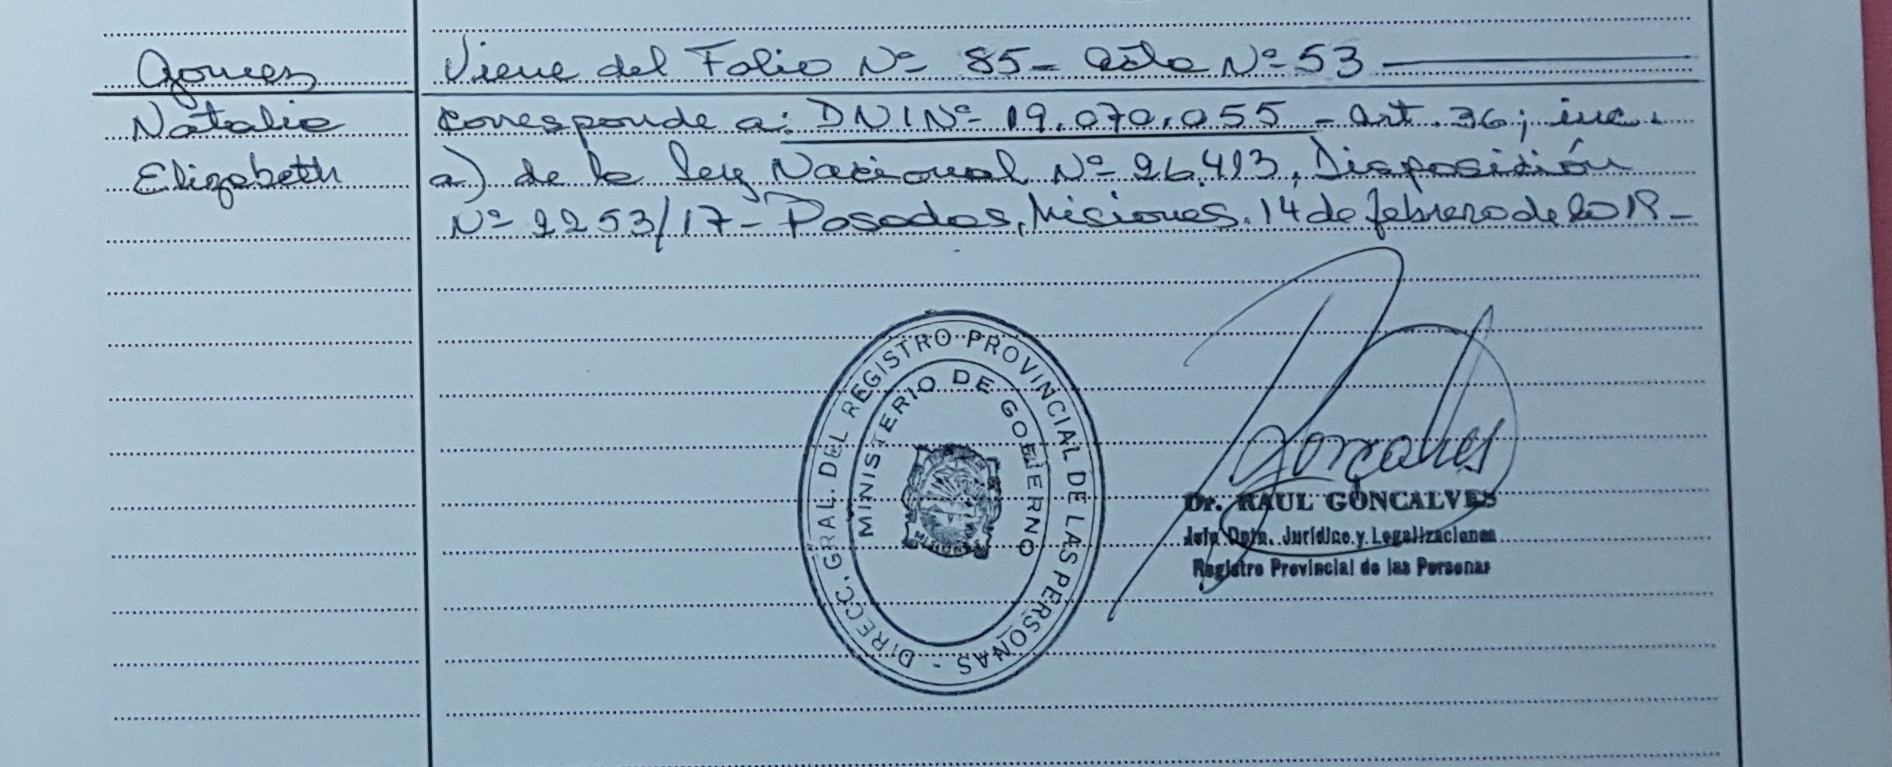 Gomes
Natalia
Elizabeth
Viene del Folio Nº 85 - Acta Nº 53
Corresponde a: DNI Nº 19.070.055 - Art. 36; inc.
a) de la ley Nacional Nº 26.413, Disposición
Nº 2253/17 - Posadas, Misiones, 14 de febrero de 2018 -
DIRECC. GRAL. DEL REGISTRO PROVINCIAL DE LAS PERSONAS -
MINISTERIO DE GOBIERNO
MISIONES
Goncalves
Dr. RAUL GONCALVES
Jefe Dpto. Jurídico y Legalizaciones
Registro Provincial de las Personas